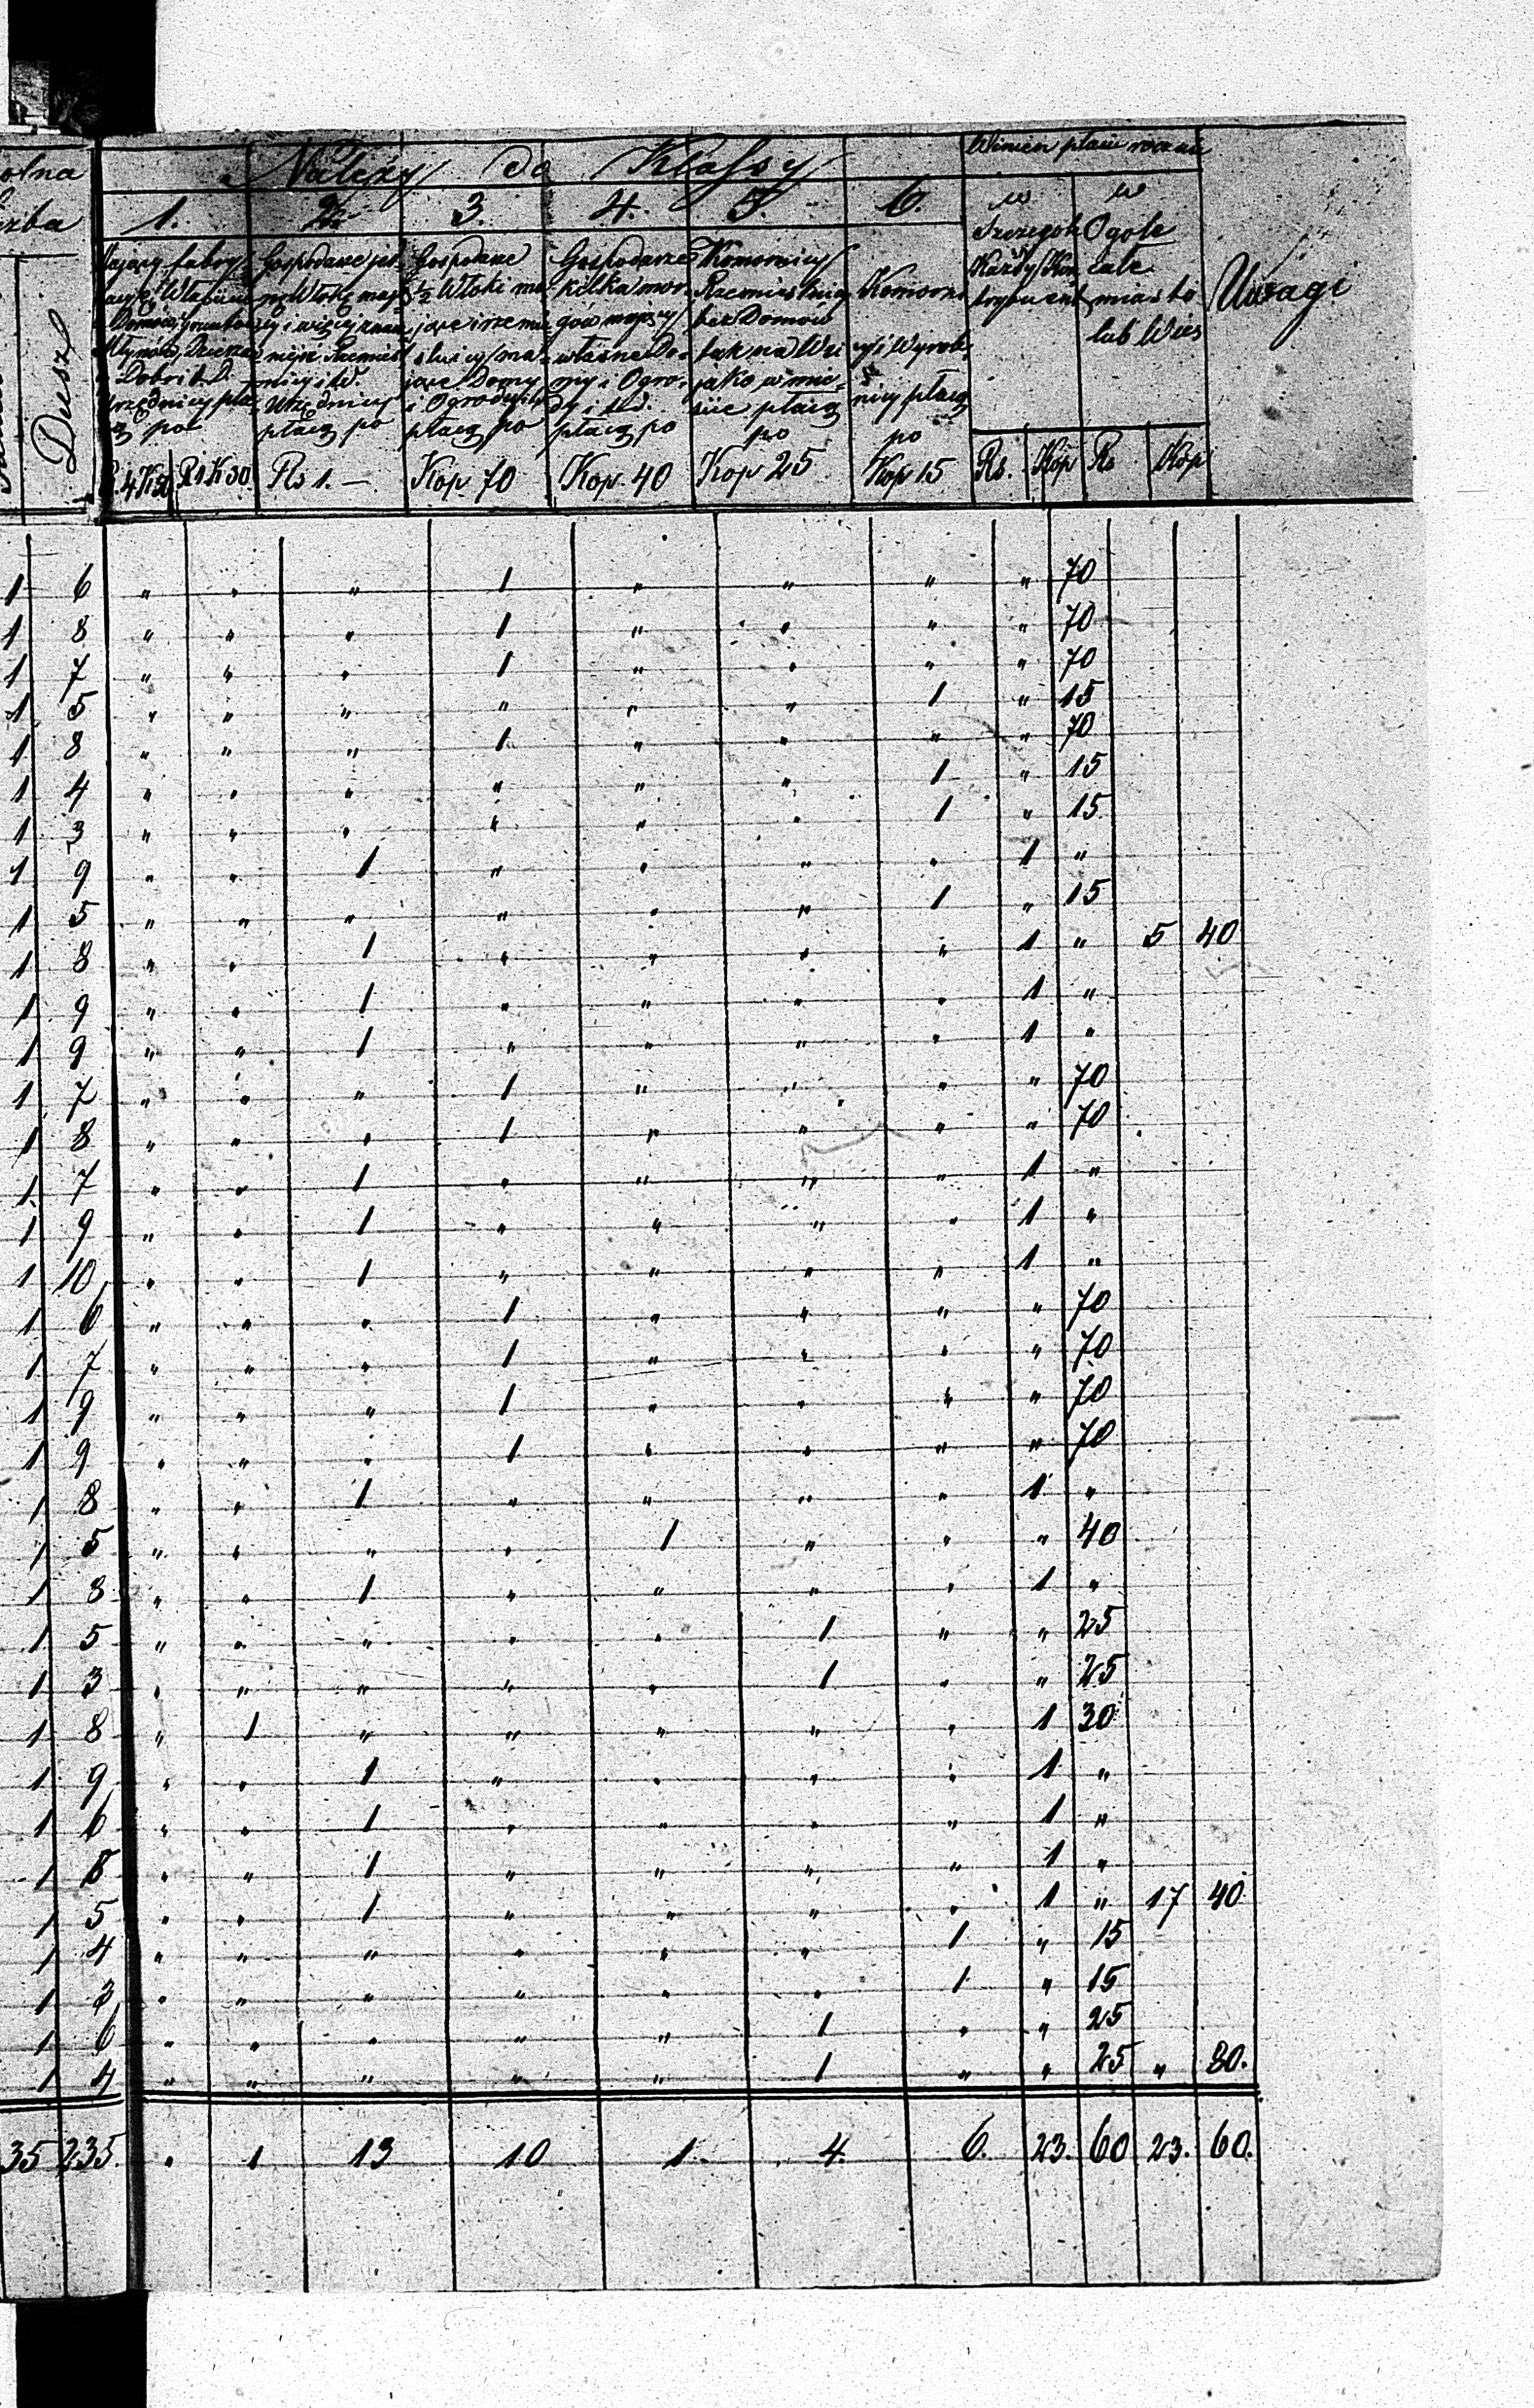 Należy do Klassy
Winien płacić rocznie
1. 2. 3. 4. 5. 6.
w Szczególe Każdy Kontrybuent
w Ogóle całe miasto lub Wieś
Uwagi
Dusz
Urzędnicy
Gospodarze
Urzędnicy
płacą po
Gospodarze
½ Włóki
jące Domy
i Ogrody
płacą po
Gospodarze
kilka morgów mający
własne Domy i Ogrody i t.d.
płacą po
Komornicy
Rzemieślnicy
bez Domów
tak na Wsi
jako w mieście płacą
po
Komornicy i Wyrobnicy płacą
po
R. 4 K 50 R 1 K 30 Rs 1. — Kop. 70 Kop. 40 Kop 25 Kop 15 Rs. Kop Rs Kop
1 6 " " " 1 " " " " 70
1 8 " " " 1 " " " " 70
1 7 " " " 1 " " " " 70
1 5 " " " " " " 1 " 15
1 8 " " " 1 " " " " 70
1 4 " " " " " " 1 " 15
1 3 " " " " " " 1 " 15
1 9 " " 1 " " " " 1 "
1 5 " " " " " " 1 " 15
1 8 " " 1 " " " " 1 " 5 40
1 9 " " 1 " " " " 1 "
1 9 " " 1 " " " " 1 "
1 7 " " " 1 " " " " 70
1 8 " " " 1 " " " " 70
1 7 " " 1 " " " " 1 "
1 9 " " 1 " " " " 1 "
1 10 " " 1 " " " " 1 "
1 6 " " " 1 " " " " 70
1 7 " " " 1 " " " " 70
1 9 " " " 1 " " " " 70
1 9 " " " 1 " " " " 70
1 8 " " 1 " " " " 1 "
1 5 " " " " 1 " " " 40
1 8 " " 1 " " " " 1 "
1 5 " " " " " 1 " " 25
1 3 " " " " " 1 " " 25
1 8 " 1 " " " " " 1 30
1 9 " " 1 " " " " 1 "
1 6 " " 1 " " " " 1 "
1 8 " " 1 " " " " 1 "
1 5 " " 1 " " " " 1 " 17 40
1 4 " " " " " " 1 " 15
1 3 " " " " " " 1 " 15
1 6 " " " " " 1 " " 25
1 4 " " " " " 1 " " 25 " 80.
35 235. " 1 13 10 1. 4. 6. 23. 60 23. 60.